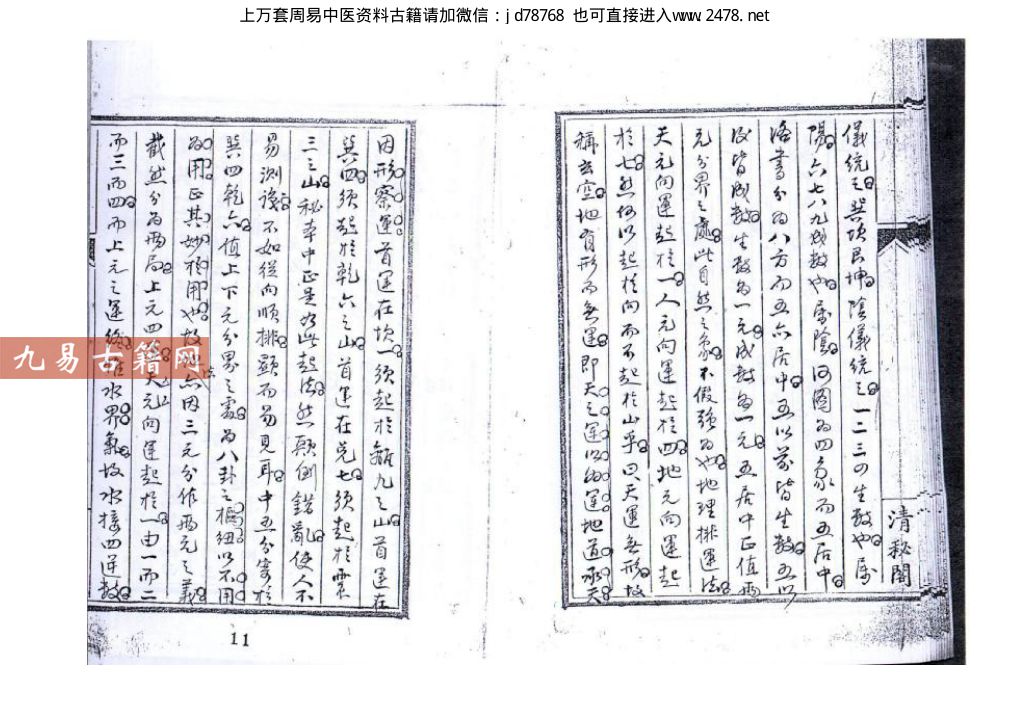 上万套周易中医资料古籍请加微信：jd78768 也可直接进入www.2478.net
儀統之巽坎艮坤陰儀統之一二三四生數也屬
陽六七八九成數也屬陰河圖為四象而五居中
洛書分為八方而五亦居中五以前皆生數五以
後皆成數生數為一元成數為一元五居中正值兩
元分界之處此自然之象不假強為也地理排運法
天元向運起於一人元向運起於四地元向運起
於七然何以起於向而不起於山乎曰天運無形故
稱玄空地有形而無運即天之運以為運地道承天
清秘閣
因形察運首運在坎一須起於離九之山首運在
巽四須起於乾六之山首運在兌七須起於震
三之山秘本中正是如此起法然顛倒錯亂使人不
易測識不如從向順排顯而易見耳中五分寄於
巽四乾六值上下元分界之處為八卦之樞紐以不用
為用正其妙於用也故 亦因三元分作兩元之義
截然分為兩局上元四 天元向運起於一由一而二
而三而四而上元之運終 水界氣故水接四逆數
九易古籍网
11